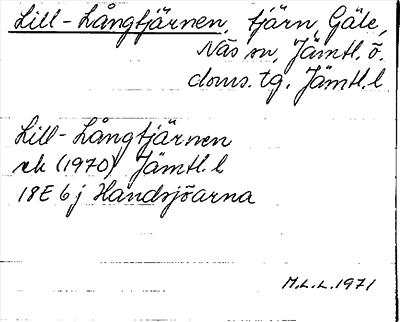 Lill-Långtjärnen, tjärn, Gåle,
Näs sn, Jämtl. ö.
doms. tg. Jämtl. l
Lill-Långtjärnen
ek (1970) Jämtl. l
18E 6j Handsjöarna
M.L.L. 1971